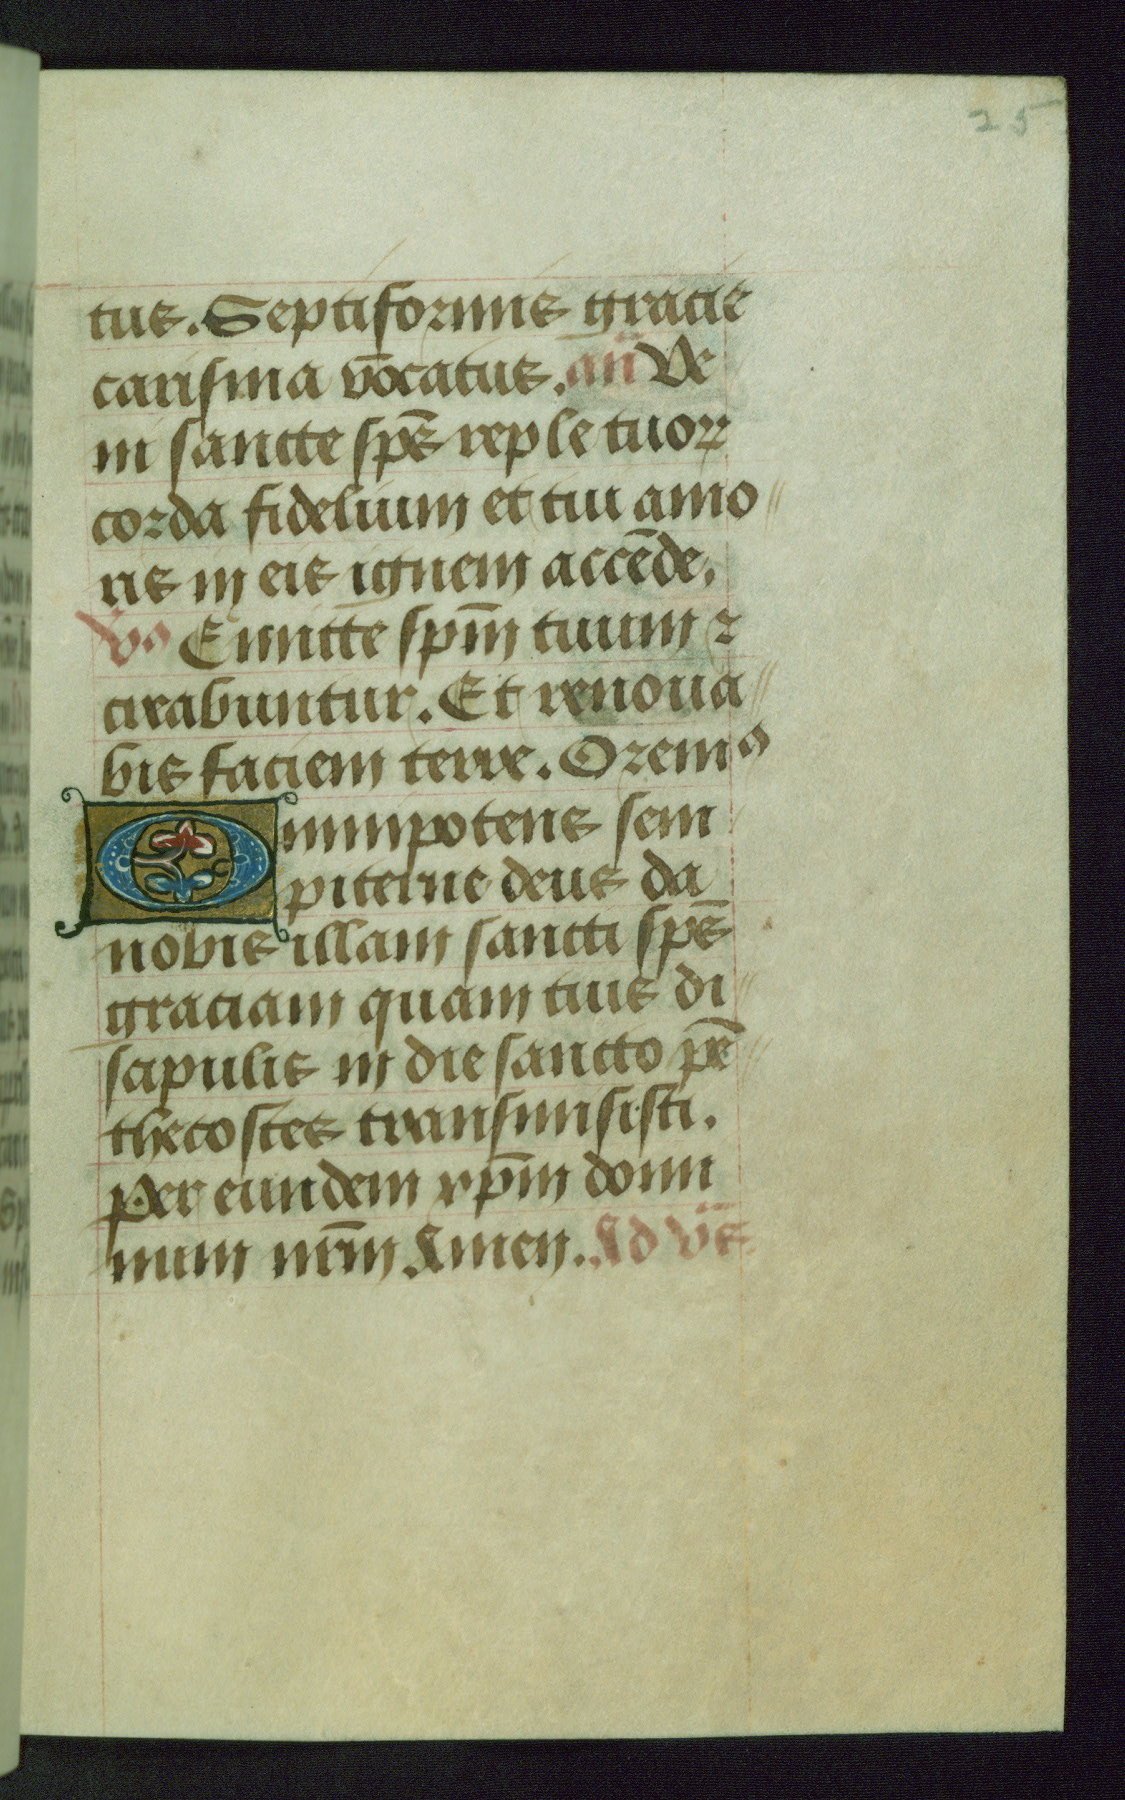 25
tus. Septiformis gracie
carisma vōcatus. an̄ Ve
ni sancte spē reple tuoꝝ
corda fidelium et tui amo
ris in eis ignem accēde.
Vs Emitte spm̄ tuum ⁊
creabuntur. Et renoua
bis faciem terre. Oremꝰ
Omnipotens sem
piterne deus da
nobis illam sancti spē
graciam quam tuis di
scipulis in die sancto pē
thecostes transmisisti.
Per eundem xp̄m domi
num nr̄m Amen. Ad vēs